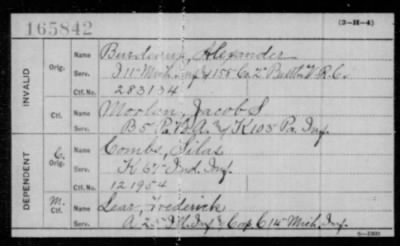 165842
(3-H-4)
INVALID
Orig.
Name
Alexander
Serv.
D 11" Mich. Inf. & 158 Co. 2" Batt'n V.R.C.
Ctf. No.
283134
Ctf.
Name
Jacob S
Serv.
B 5" Pa. H.A. & K 103 Pa. Inf.
DEPENDENT
C.
Orig.
Name
Combs, Silas
Serv.
K 67 Ind. Inf.
Ctf. No.
121954
M.
Ctf.
Name
Lear, Frederick
Serv.
A 2 Inf. & Cap. C 14" Mich. Inf.